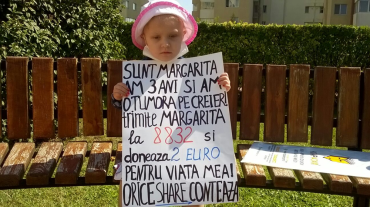 SUNT MARGARITA
AM 3 ANI SI AM
O TUMORA PE CREIER!
trimite MARGARITA
la 8832 si
doneaza 2 EURO
PENTRU VIATA MEA!
ORICE SHARE CONTEAZA